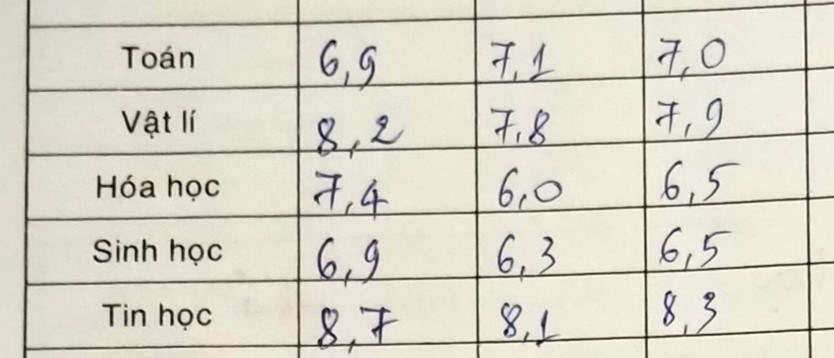 Toán 6,9 7,1 7,0
Vật lí 8,2 7,8 7,9
Hóa học 7,4 6,0 6,5
Sinh học 6,9 6,3 6,5
Tin học 8,7 8,1 8,3